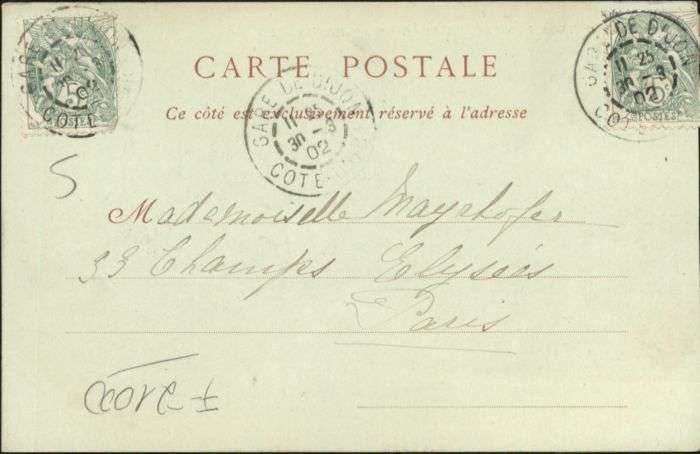 CARTE POSTALE
Ce côté est exclusivement réservé à l'adresse
GARE DE DIJON
11 25
30 - 3
02
COTE
GARE DE DIJON
11 25
30 - 3
02
CO
POSTES
GARE
02
COTE
5
Mademoiselle Mayrhofer
33 Champs Elysées
Paris